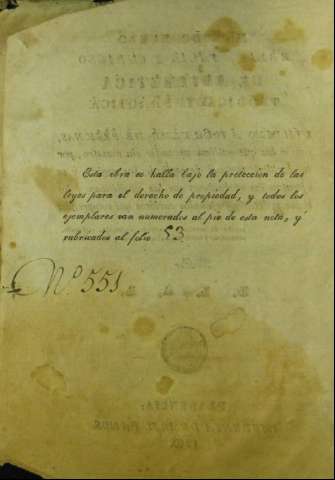 Esta obra se halla bajo la proteccion de las
leyes para el derecho de propiedad, y todos los
ejemplares van numerados al pie de esta nota, y
rubricados al folio 53
Nº 551